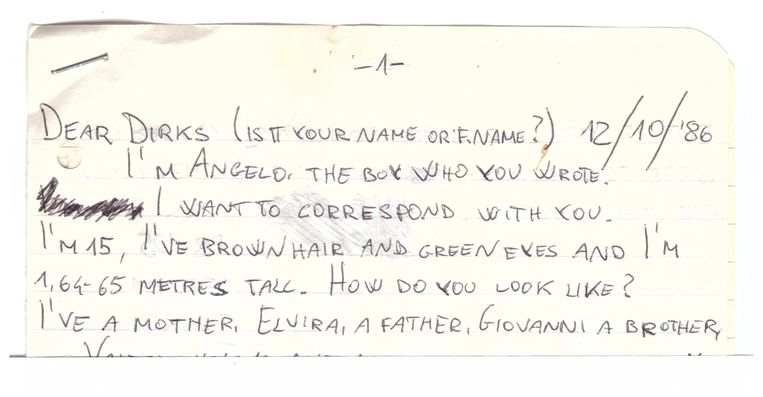 -1-
DEAR DIRKS (IS IT YOUR NAME OR F.NAME?) 12/10/'86
I'M ANGELO. THE BOY WHO YOU WROTE.
I WANT TO CORRESPOND WITH YOU.
I'M 15, I'VE BROWN HAIR AND GREEN EYES AND I'M
1,64-65 METRES TALL. HOW DO YOU LOOK LIKE?
I'VE A MOTHER, ELVIRA, A FATHER, GIOVANNI A BROTHER,